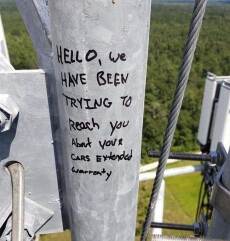 HELLO, we
HAVE BEEN
TRYING TO
Reach you
About your
CARS Extended
warranty